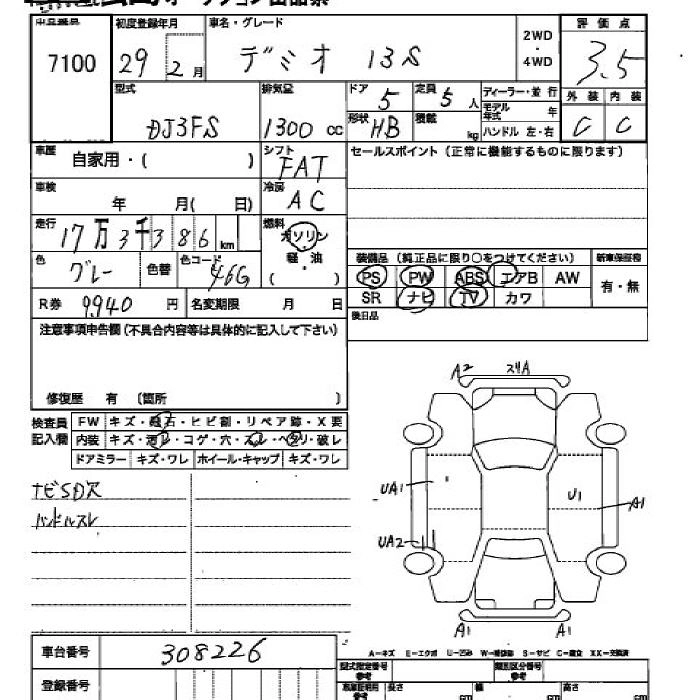 初度登録年月
車名・グレード
評価点
7100
29
2月
デミオ 13S
2WD
・
4WD
3.5
型式
排気量
ドア
定員
ディーラー・並行
外装
内装
DJ3FS
1300 cc
5
5人
モデル年式
年
形状
HB
積載
kg
ハンドル 左・右
C
C
車歴
自家用・( )
シフト
FAT
セールスポイント(正常に機能するものに限ります)
車検
年 月( 日)
冷房
AC
走行
17万3千386km
燃料
ガソリン
軽・油
( )
装備品(純正品に限り○をつけてください)
新車保証書
色
グレー
色替
色コード
46G
PS PW ABS エアB AW
有・無
R券
9940円
名変期限
月 日
SR ナビ TV カワ
後日品
注意事項申告欄(不具合内容等は具体的に記入して下さい)
修復歴 有 〔箇所 〕
検査員
記入欄
FW キズ・飛石・ヒビ割・リペア跡・X要
内装 キズ・汚レ・コゲ・穴・スレ・ヘタリ・破レ
ドアミラー キズ・ワレ ホイール・キャップ キズ・ワレ
ナビSD欠
ハンドルスレ
A2
スリA
UA1
U1
A1
UA2
A1
A1
車台番号
308226
A-キズ E-エクボ U-凹み W-補修跡 S-サビ C-腐食 XX-交換済
型式指定番号
参考
類別区分番号
参考
登録番号
長さ
cm
幅
cm
高さ
cm